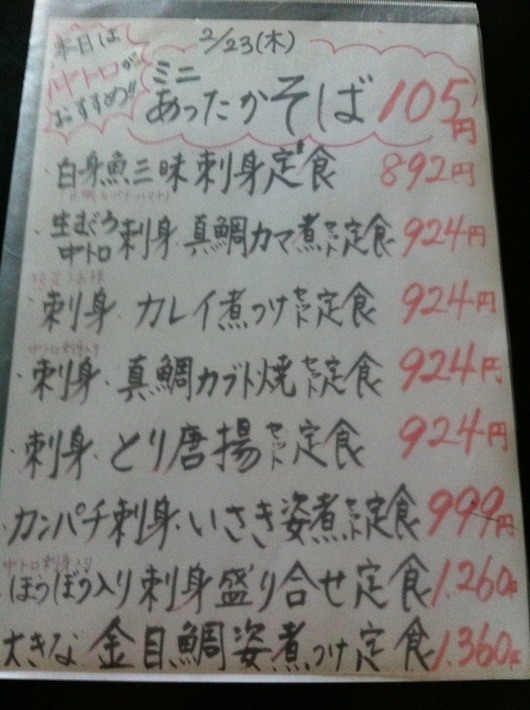 本日は
中トロが
おすすめ!!
2/23(木)
ミニ
あったかそば 105円
・白身魚三昧刺身定食 892円
・生まぐろ中トロ刺身・真鯛カマ煮セット定食 924円
限定3名様
・刺身・カレイ煮つけセット定食 924円
中トロ刺身入り
・刺身・真鯛カブト焼セット定食 924円
・刺身・とり唐揚セット定食 924円
・カンパチ刺身・いさき姿煮セット定食 999円
中トロ刺身入り
・ほうぼう入り刺身盛り合せ定食 1,260円
大きな金目鯛姿煮つけ定食 1,360円